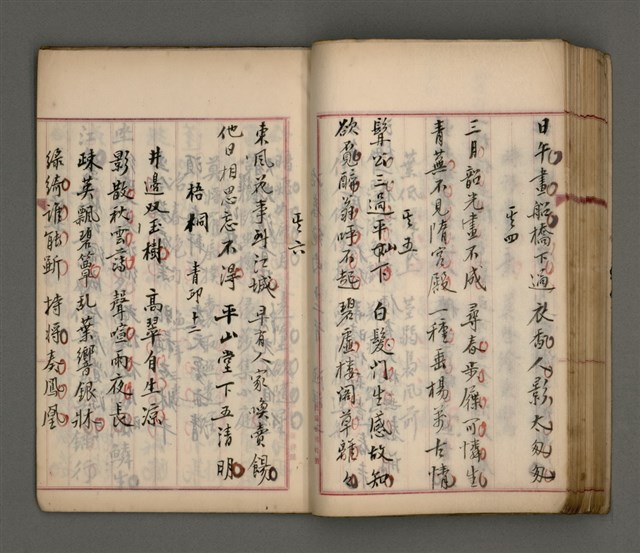 日午畫船橋下過 衣香人影太匆匆
其四
三月韶光畫不成 尋春步屧可憐生
青蕪不見隋宮殿 一種垂楊萬古情
其五
髯公三過平山下 白髮門生感故知
欲覓醉翁呼不起 碧虛樓閣草離
其六
東風花事到江城 早有人家喚賣餳
他日相思忘不得 平山堂下五清明
梧桐 青邱 十二
井邊双玉樹 高翠自生凉
影散秋雲 聲喧雨夜長
疎英飄碧簟 乱葉響銀牀
綠綺誰能斵 持將奏鳳凰